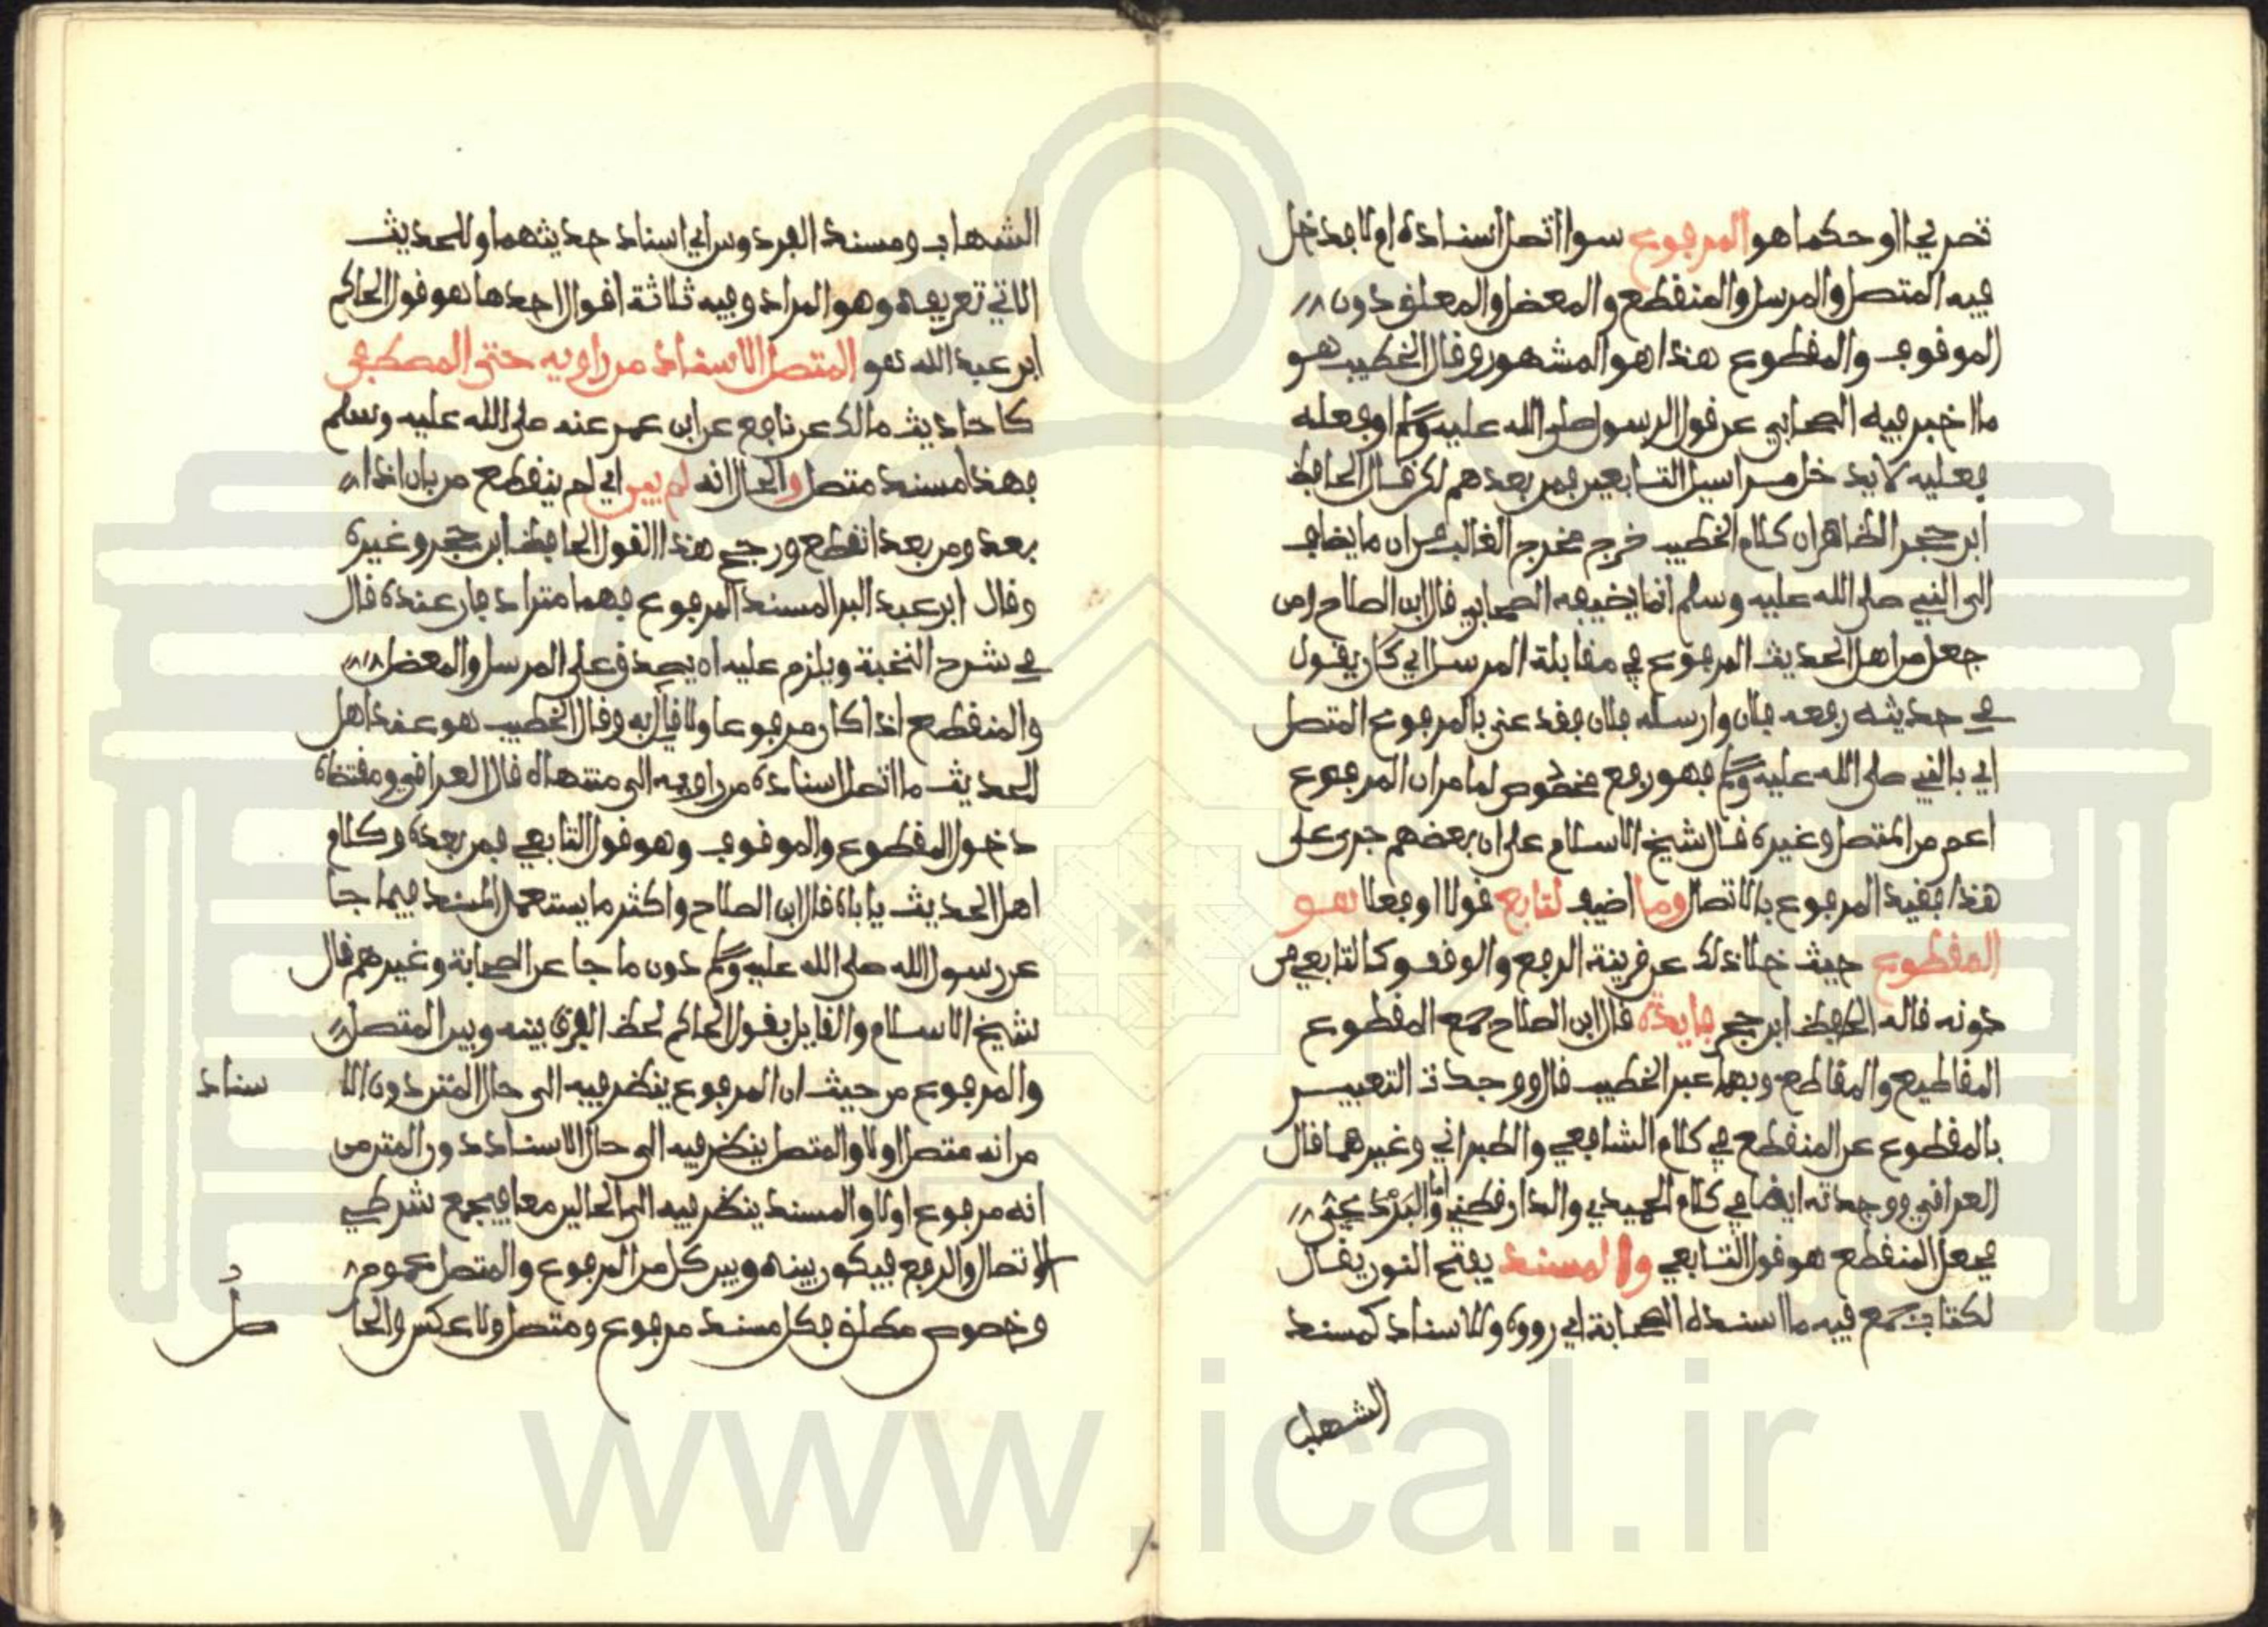 تصريحا او حكما هو المرفوع سوا اتصل اسناده او لا فدخل
فيه المتصل والمرسل والمنقطع والمعضل والمعلق دون
الموقوف والمقطوع هذا هو المشهور وقال الخطيب هو
ما اخبر فيه الصحابي عن قول الرسول صلى الله عليه وسلم او فعله
فعليه لا يدخل مراسيل التابعين فمن بعدهم لكن قال الحافظ
ابن حجر الظاهر ان كلام الخطيب خرج مخرج الغالب من ان ما يضاف
الى النبي صلى الله عليه وسلم انما يضيفه الصحابي قال ابن الصلاح ومن
جعل من اهل الحديث المرفوع في مقابلة المرسل اي كان يقول
في حديثه رفعه فلان وارسله فلان فقد عنى بالمرفوع المتصل
اي بالنبي صلى الله عليه وسلم فهو رفع مخصوص لما مر ان المرفوع
اعم من المتصل وغيره قال شيخ الاسلام على ان بعضهم جرى على
هذا فقيد المرفوع بالاتصال وما اضيف لتابع قولا او فعلا هو
المقطوع حيث خلا ذلك عن قرينة الرفع والوقف وكالتابعي من
دونه قاله الحافظ ابن حجر فايدة قال ابن الصلاح جمع المقطوع
المقاطيع والمقاطع وبهما عبر الخطيب قال ووجدت التعبير
بالمقطوع عن المنقطع في كلام الشافعي والطبراني وغيرهما قال
العراقي ووجدته ايضا في كلام الحميدي والدارقطني واما البرديجي
فجعل المنقطع هو قول التابعي والمسند بفتح النون يقال
لكتاب جمع فيه ما اسنده الصحابة اي رووه وللاسناد كمسند
الشهاب
الشهاب ومسند الفردوس اي اسناد حديثهما وللحديث
الاتي تعريفه وهو المراد وفيه ثلاثة اقوال احدها هو قول الحاكم
ابن عبد الله هو المتصل الاسناد من راويه حتى المصطفى
كاحاديث مالك عن نافع عن ابن عمر عنه صلى الله عليه وسلم
فهذا مسند متصل والحال انه لم يبن اي لم ينقطع من بان اذا
بعد ومن بعد انقطع ورجح هذا القول الحافظ ابن حجر وغيره
وقال ابن عبد البر المسند المرفوع فهما مترادفان عنده قال
في شرح النخبة ويلزم عليه ان يصدق على المرسل والمعضل
والمنقطع اذا كان مرفوعا ولا قايل به وقال الخطيب هو عند اهل
الحديث ما اتصل اسناده من راويه الى منتهاه قال العراقي ومقتضاه
دخول المقطوع والموقوف وهو قول التابعي فمن بعده وكلام
اهل الحديث ياباه قال ابن الصلاح واكثر ما يستعمل المسند فيما جا
عن رسول الله صلى الله عليه وسلم دون ما جا عن الصحابة وغيرهم قال
شيخ الاسلام والقايل بقول الحاكم لحظ الفرق بينه وبين المتصل
والمرفوع من حيث ان المرفوع ينظر فيه الى حال المتن دون الاسناد
من انه متصل اولا والمتصل ينظر فيه الى حال الاسناد دون المتن من
انه مرفوع اولا والمسند ينظر فيه الى الحالين معا فيجمع شرطي
الاتصال والرفع فيكون بينه وبين كل من المرفوع والمتصل عموم
وخصوص مطلق فكل مسند مرفوع ومتصل ولا عكس والحاصل
www.ical.ir